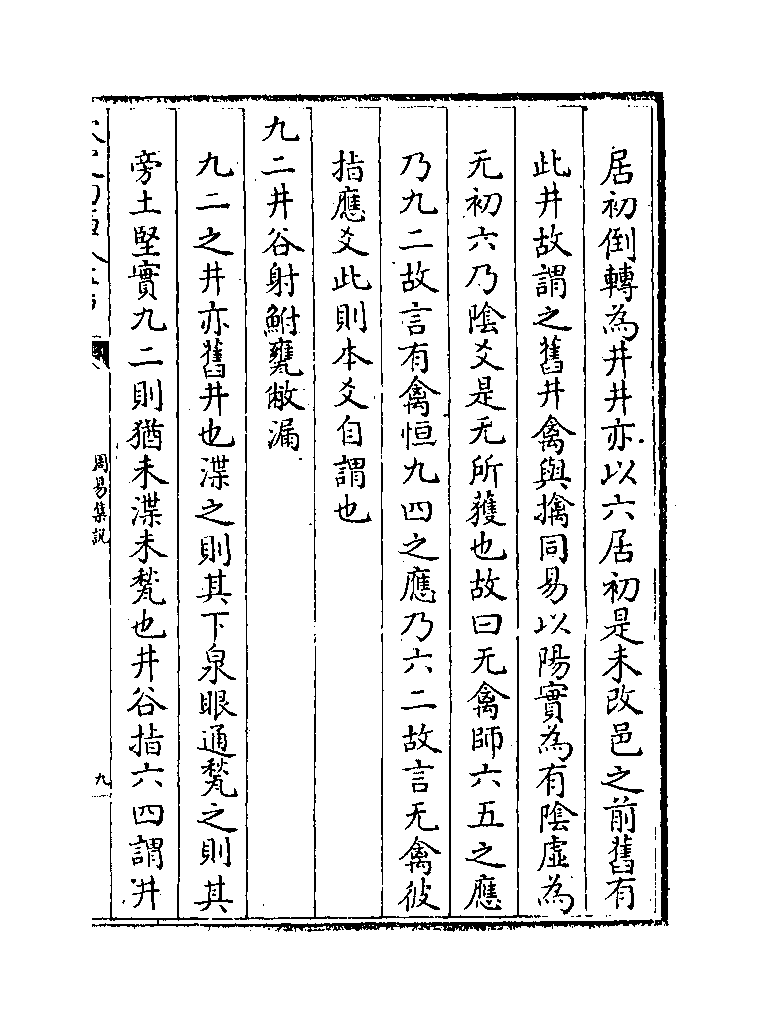 居初倒轉為井井亦以六居初是未改邑之前舊有
此井故謂之舊井禽與擒同易以陽實為有陰虛為
无初六乃陰爻是无所獲也故曰无禽師六五之應
乃九二故言有禽恒九四之應乃六二故言无禽彼
指應爻此則本爻自謂也
九二井谷射鮒甕敝漏
九二之井亦舊井也渫之則其下泉眼通甃之則其
旁土堅實九二則猶未渫未甃也井谷指六四謂井
周易集說
九